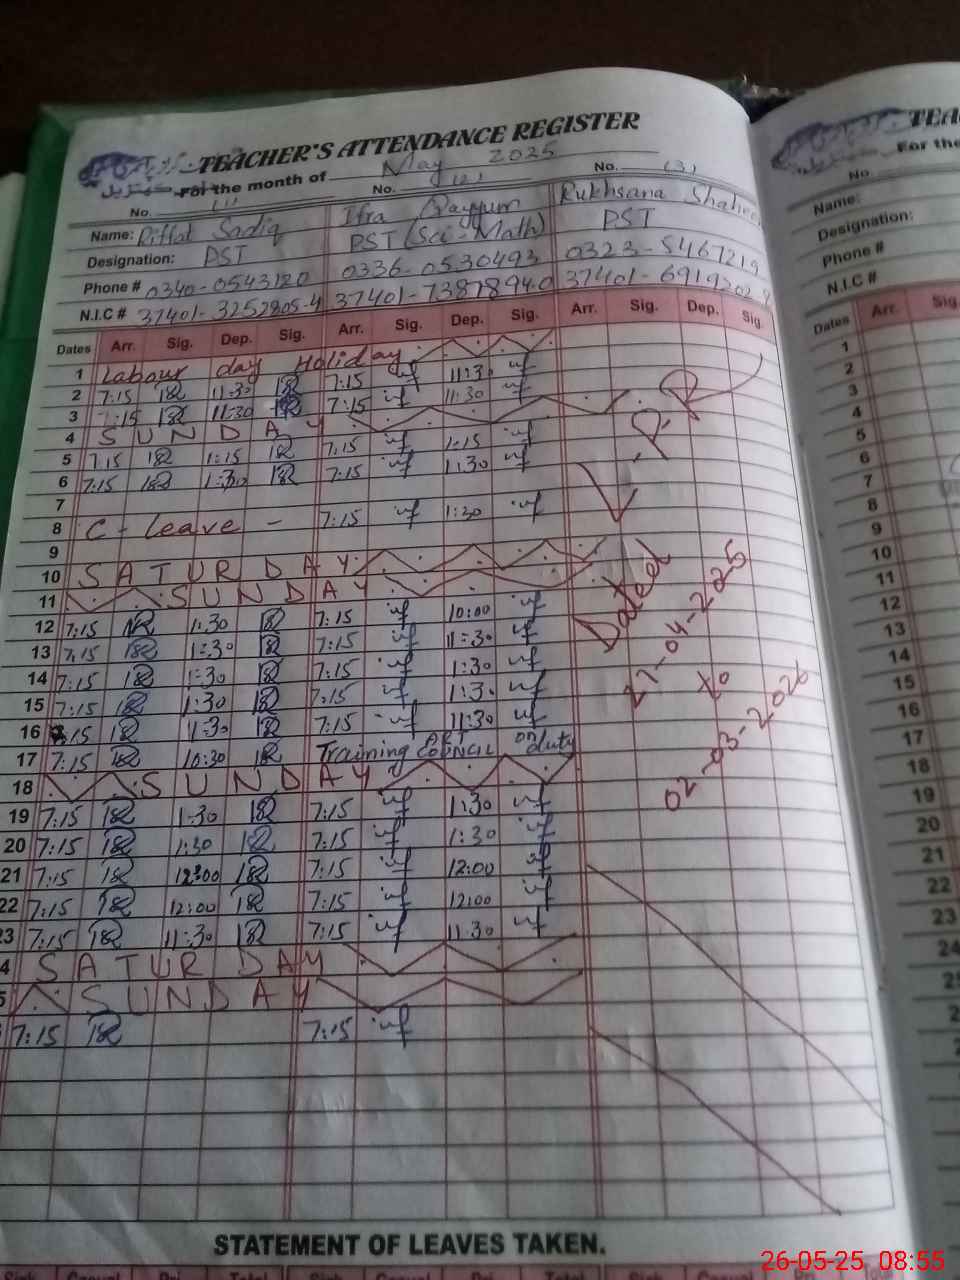 TEACHER'S ATTENDANCE REGISTER
For the month of May 2025
No. (1) No. (2) No. (3)
Name: Riffat Sadiq Ifra Qayyum Rukhsana Shaheen
Designation: PST PST (Sci-Math) PST
Phone # 0340-0543120 0336-0530493 0323-5467219
N.I.C # 37401-3252805-4 37401-7387894-0 37401-6919202-
Dates Arr. Sig. Dep. Sig. Arr. Sig. Dep. Sig. Arr. Sig. Dep. Sig.
1 Labour day Holiday
2 7:15 11:30 7:15 11:30
3 7:15 11:30 7:15 11:30
4 SUNDAY
5 7:15 1:15 7:15 1:15
6 7:15 1:30 7:15 1:30
7
8 C-Leave - 7:15 1:30
9
10 SATURDAY
11 SUNDAY
12 7:15 1:30 7:15 10:00
13 7:15 1:30 7:15 1:30
14 7:15 1:30 7:15 1:30
15 7:15 1:30 7:15 1:30
16 7:15 11:30 7:15 11:30
17 7:15 10:30 Training ART COUNCIL on duty
18 SUNDAY
19 7:15 1:30 7:15 1:30
20 7:15 1:30 7:15 1:30
21 7:15 12:00 7:15 12:00
22 7:15 12:00 7:15 12:00
23 7:15 11:30 7:15 11:30
4 SATURDAY
5 SUNDAY
7:15 7:15
L.P.R
Dated
17-04-2025
to
02-03-2026
STATEMENT OF LEAVES TAKEN.
TEA
For the
No.
Name:
Designation:
Phone #
N.I.C #
Dates Arr. Sig.
1
2
3
4
5
6
7
8
9
10
11
12
13
14
15
16
17
18
19
20
21
22
23
24
25
26-05-25 08:55